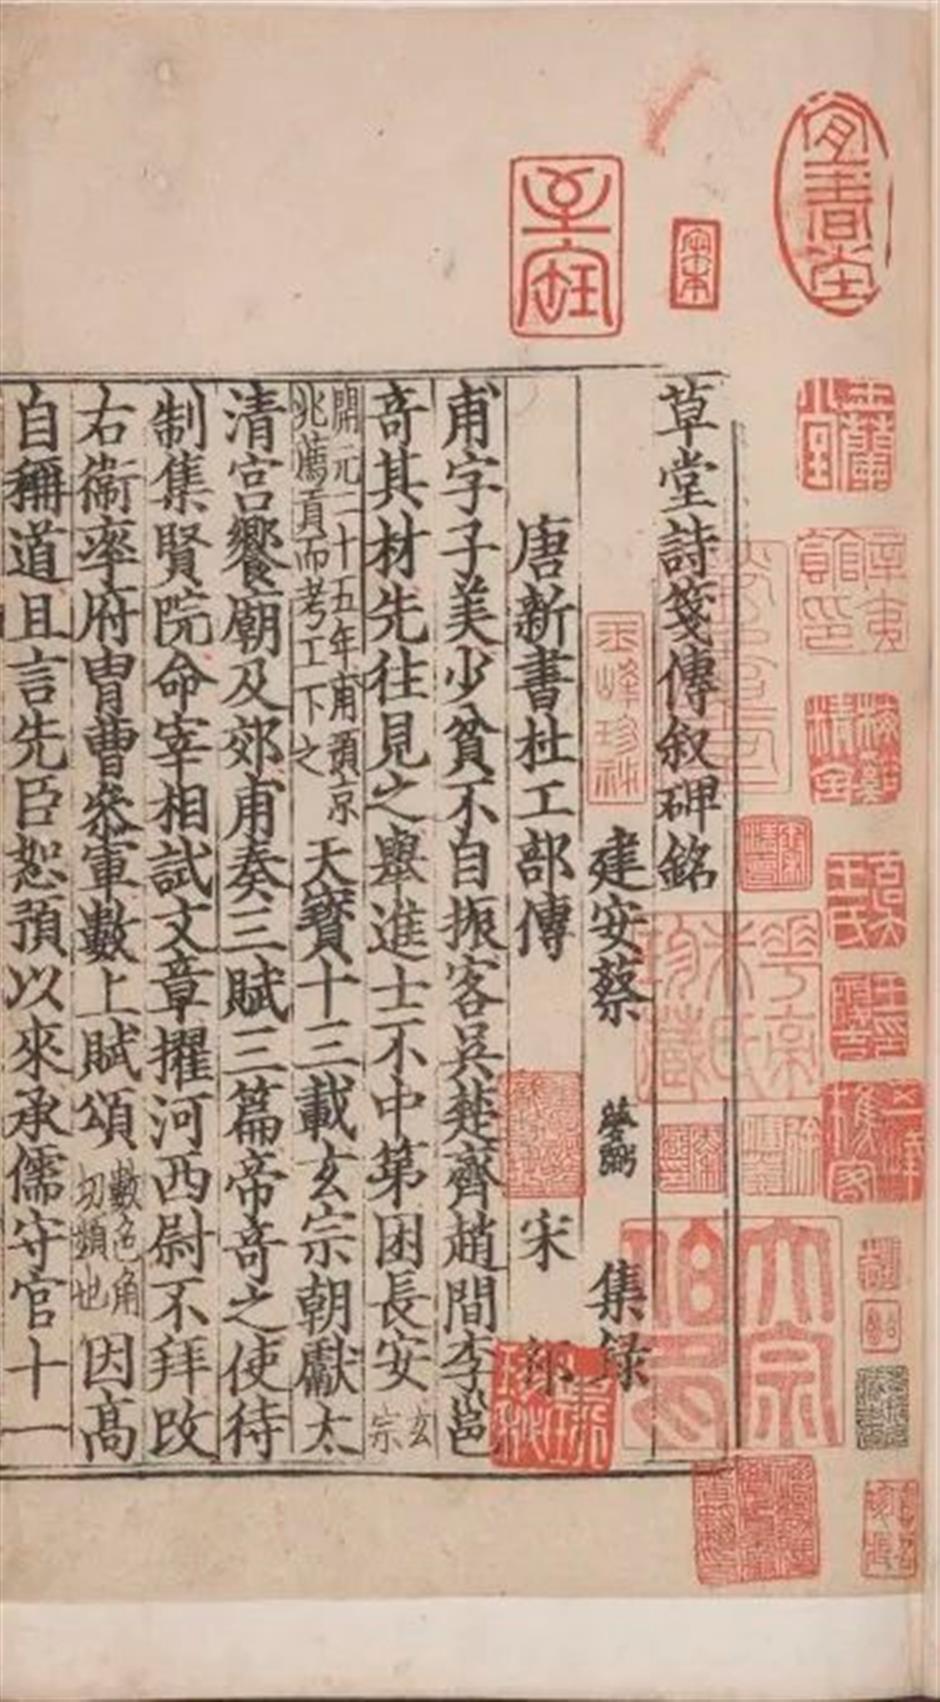 草堂詩箋傳叙碑銘
建安蔡 夢弼 集録
唐新書杜工部傳 宋 祁
甫字子美少貧不自振客吳楚齊趙間李邕
奇其材先往見之舉進士不中第困長安 玄宗
開元二十五年甫預京兆薦貢而考工下之 天寳十三載玄宗朝獻太
清宮饗廟及郊甫奏三賦三篇帝奇之使待
制集賢院命宰相試文章擢河西尉不拜改
右衞率府胄曹參軍數上賦頌 數色角切頻也 因高
自稱道且言先臣恕預以來承儒守官十一
宜春堂
宋本
玉峰珍秘
華亭朱氏珍藏
大宗伯印